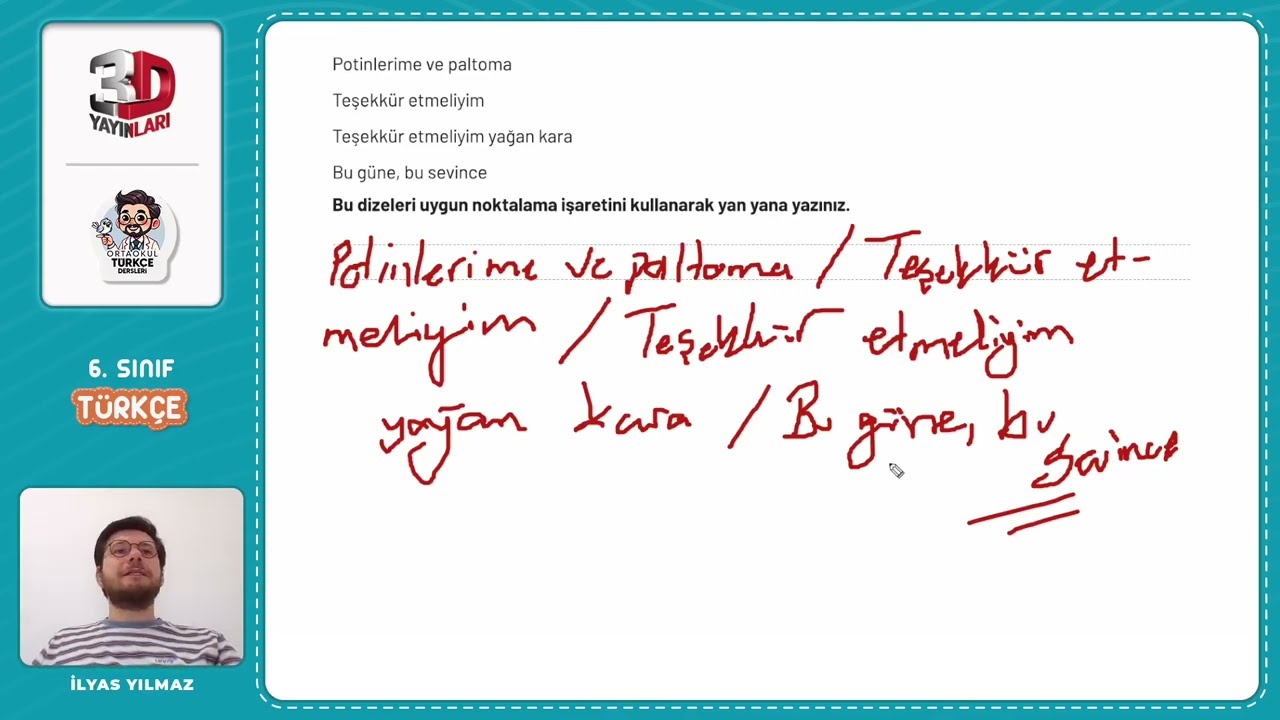 3D
YAYINLARI
ORTAOKUL
TÜRKÇE
DERSLERİ
6. SINIF
TÜRKÇE
İLYAS YILMAZ
Potinlerime ve paltoma
Teşekkür etmeliyim
Teşekkür etmeliyim yağan kara
Bu güne, bu sevince
Bu dizeleri uygun noktalama işaretini kullanarak yan yana yazınız.
Potinlerime ve paltoma / Teşekkür et-
meliyim / Teşekkür etmeliyim
yağan kara / Bu güne, bu
sevince